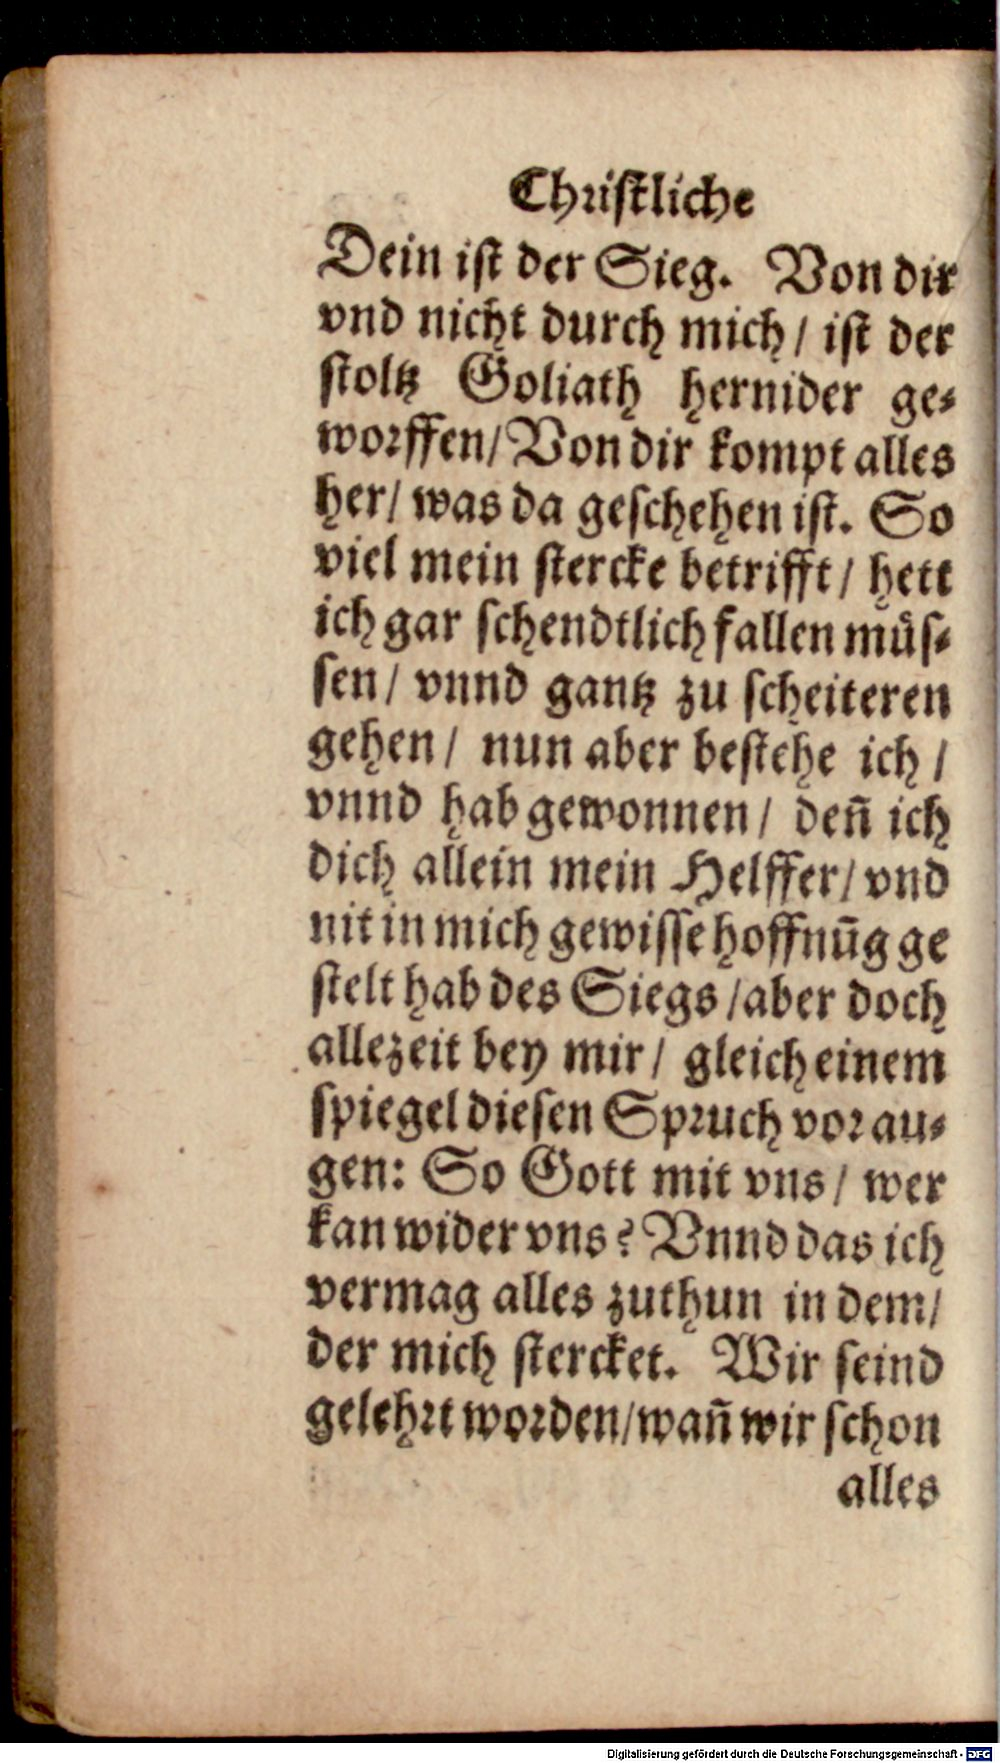 Christliche
Dein ist der Sieg. Von dir
vnd nicht durch mich/ ist der
stoltz Goliath hernider ge-
worffen/ Von dir kompt alles
her/ was da geschehen ist. So
viel mein stercke betrifft/ hett
ich gar schendtlich fallen müs-
sen/ vnnd gantz zu scheiteren
gehen/ nun aber bestehe ich/
vnnd hab gewonnen/ deñ ich
dich allein mein Helffer/ vnd
nit in mich gewisse hoffnūg ge
stelt hab des Siegs/ aber doch
allezeit bey mir/ gleich einem
spiegel diesen Spruch vor au-
gen: So Gott mit vns/ wer
kan wider vns? Vnnd das ich
vermag alles zuthun in dem/
der mich stercket. Wir seind
gelehrt worden/ wañ wir schon
alles
Digitalisierung gefördert durch die Deutsche Forschungsgemeinschaft - DFG